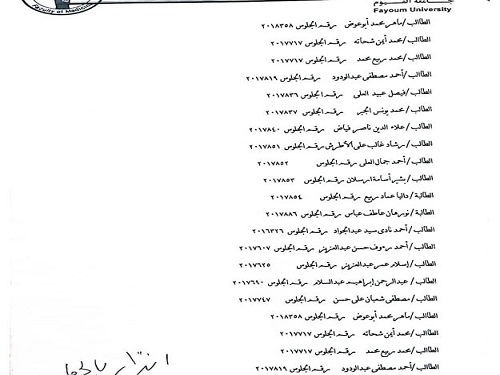 جامعة الفيوم
Fayoum University
Faculty of Medicine
الطالب/ماهر محمد أبو عوض رقم الجلوس ٢٠١٨٣٥٨
الطالب/محمد أيمن شحاته رقم الجلوس ٢٠١٧٧١٧
الطالب/محمد ربيع محمد رقم الجلوس ٢٠١٧٧١٧
الطالب/أحمد مصطفى عبدالودود رقم الجلوس ٢٠١٧٨١٩
الطالب/فيصل عبيد العلى رقم الجلوس ٢٠١٧٨٣٦
الطالب/محمد يونس الجبر رقم الجلوس ٢٠١٧٨٣٧
الطالب/علاء الدين ناصر فياض رقم الجلوس ٢٠١٧٨٤٠
الطالب/رشاد غالب على الأطرش رقم الجلوس ٢٠١٧٨٥١
الطالب/أحمد جمال العلى رقم الجلوس ٢٠١٧٨٥٢
الطالب/بشير أسامة ارسلان رقم الجلوس ٢٠١٧٨٥٣
الطالبة/داليا عماد ربيع رقم الجلوس ٢٠١٧٨٥٤
الطالبة/نورهان عاطف عباس رقم الجلوس ٢٠١٧٨٨٦
الطالب/أحمد نادى سيد عبدالجواد رقم الجلوس ٢٠١٦٣٢٦
الطالب/أحمد رءوف حسن عبدالعزيز رقم الجلوس ٢٠١٧٦٠٧
الطالب/إسلام عمر عبدالعزيز رقم الجلوس ٢٠١٧٦٢٥
الطالب/عبدالرحمن إبراهيم عبدالسلام رقم الجلوس ٢٠١٧٦٩٠
الطالب/مصطفى شعبان على حسن رقم الجلوس ٢٠١٧٧٤٧
الطالب/ماهر محمد أبو عوض رقم الجلوس ٢٠١٨٣٥٨
الطالب/محمد أيمن شحاته رقم الجلوس ٢٠١٧٧١٧
الطالب/محمد ربيع محمد رقم الجلوس ٢٠١٧٧١٧
الطالب/أحمد مصطفى عبدالودود رقم الجلوس ٢٠١٧٨١٩